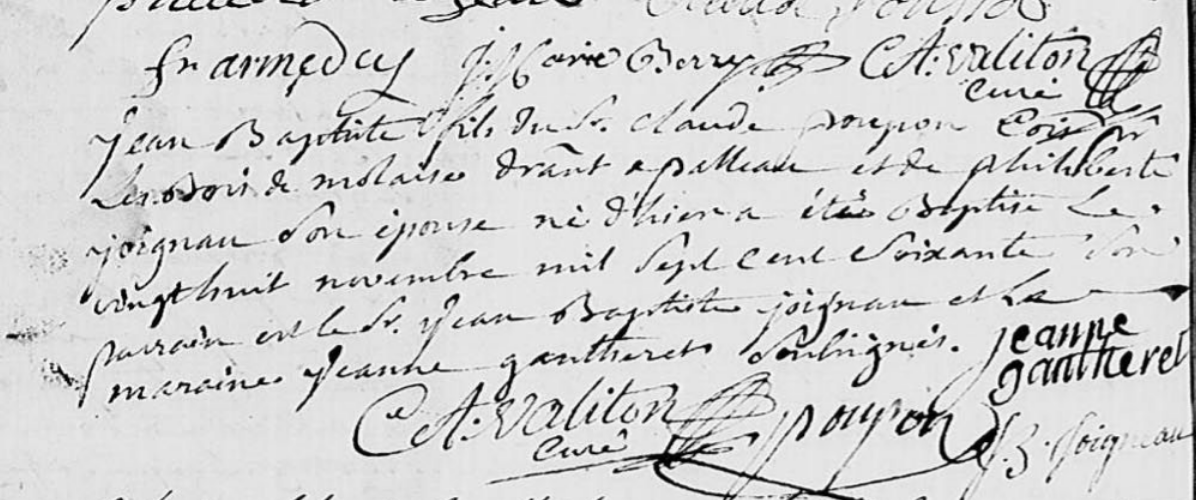 fr armedey J. Marie Berry C A: valiton
curé
jean Baptiste fils du Sr. claude poupon
Les Bois de molaise dt̃ant a palleau et de philiberte
joignau Son épouse né d'hier a été Baptisé Le
vingthuit novembre mil Sept Cent Soixante Son
parrain est le Sr. jean Baptiste joignau et La
maraine jeanne gautheret Soubsignés. jeanne
gautheret
C A: valiton poupon J. B. joigneau
curé